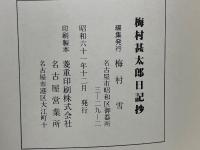 梅村甚太郎日記抄
編集発行 梅村雪
名古屋市昭和区御器所
三ー二九ー二
昭和六十一年十二月 発行
印刷製本 菱重印刷株式会社
名古屋営業所
名古屋市港区大江町十